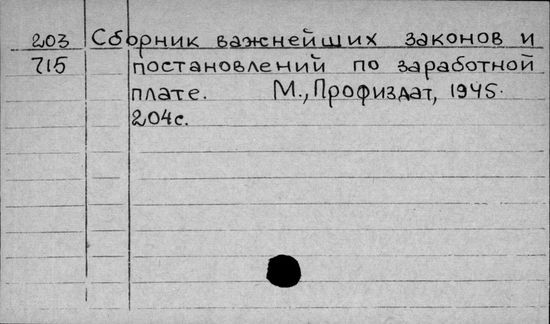 203 Сборник важнейших законов и
715 постановлений по заработной
плате. М., Профиздат, 1945.
204с.